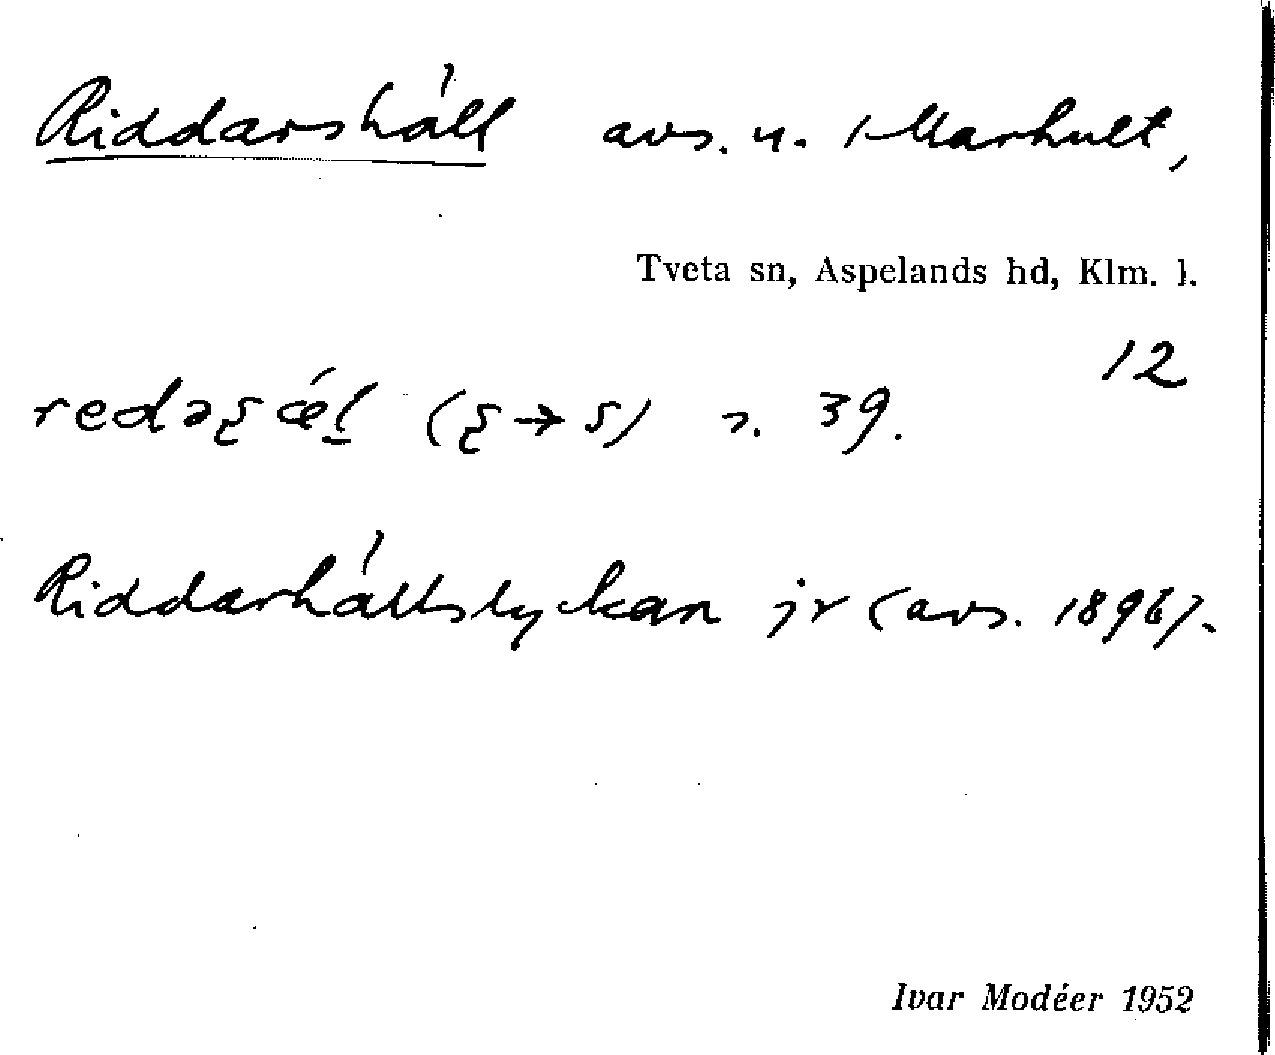 Riddarshäll avs. u. Marhult,
Tveta sn, Aspelands hd, Klm. l.
12
39.
Riddarhällslyckan jr (avs. 1896).
Ivar Modéer 1952